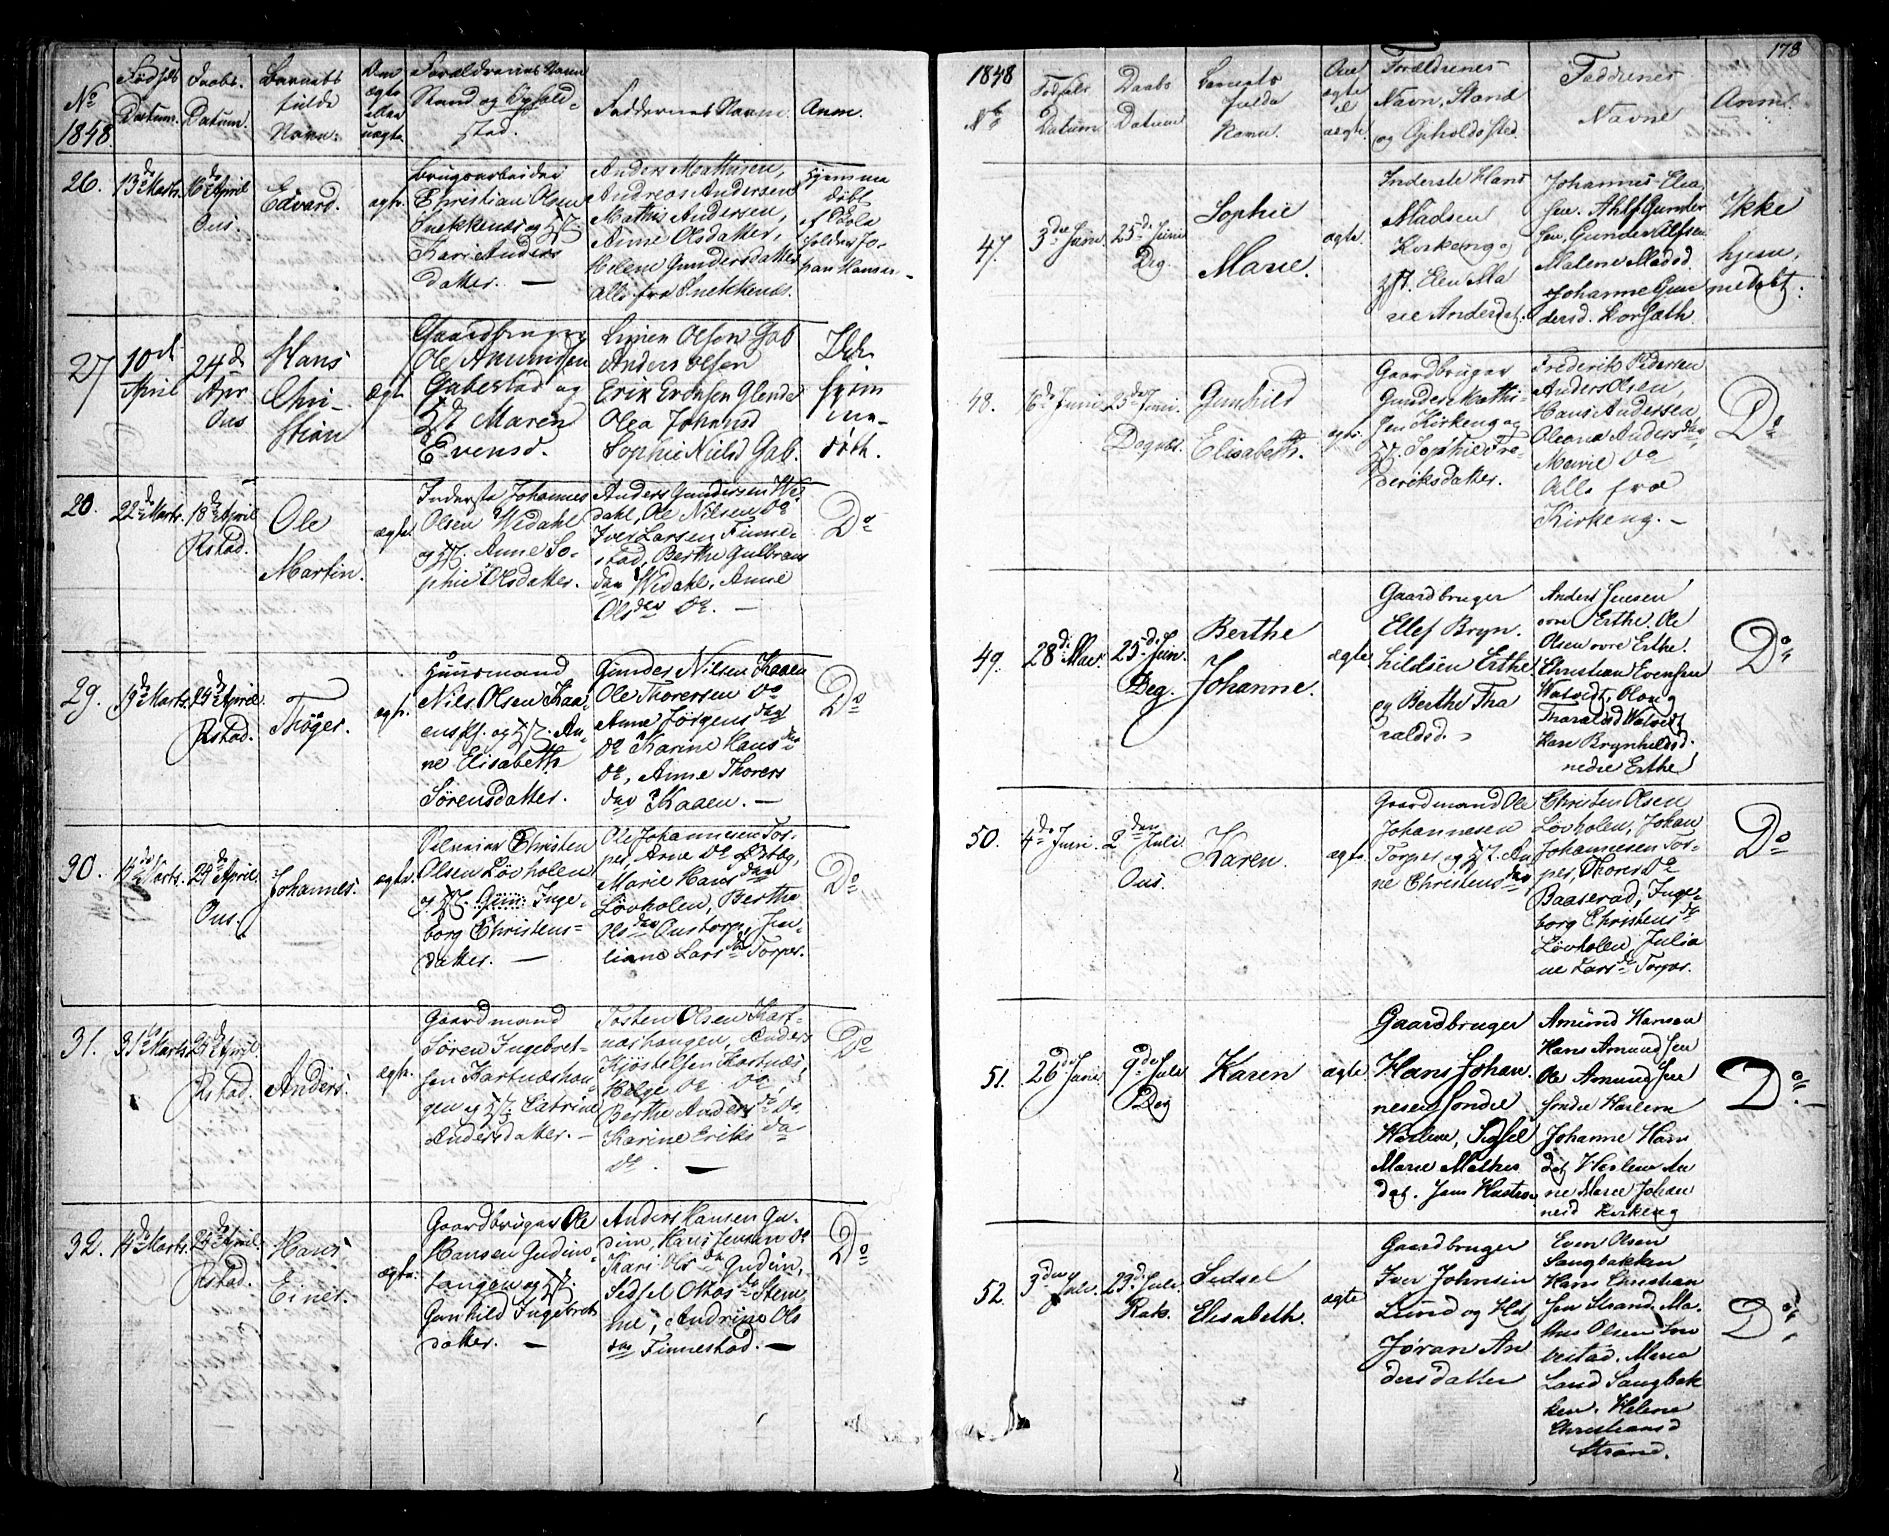 No
1848.
Fødsels
Datum.
Daabs.
Datum.
Barnets
fulde
Navn.
Om
ægte
eller
uægte
Forældrenes Navn
Stand og Ophold-
sted.
Faddernes Navne.
Anm.
26.
13de Marts.
16de April
Ous.
Edvard.
ægte.
Brugsarbeider
Christian Olsen
Snekkenes og H.
Kari Anders
datter. —
Anders Mathisen,
Andreas Andersen
Mathis Andersen,
Anne Olsdatter,
Helene Gundersdatter
Alle fra Snekkenes.
Hjemme
døbt
af Skole
holder Jo-
han Hansen
27
10de
April
24de
Apr
Ous
Hans
Chri-
stian
Ægte
Gaardbruger
Ole Amundsen
Gabestad og
H. Maren
Evensd.
Simen Olsen Gab
Anders Olsen
Erik Eriksen
Olea Johansd
Sophie Nielsd Gab.
Ikke
hjem
me-
døbt.
28.
22de Marts.
18de April
Rstad.
Ole
Martin.
ægte.
Inderste Johannes
Olsen Wedahl
og H. Anne So-
phie Olsdatter.
Anders Gundersen We-
dahl, Ole Nilsen Do
Iver Larsen Finne-
stad, Berthe Gulbrans
datter Wedahl, Anne
Olsdatter Do. —
Do
29.
19de Marts.
24de April
Rstad.
Thøger.
ægte.
Huusmand
Nils Olsen Kaa-
enskf. og H. An-
ne Elisabeth
Sørensdatter.
Gunder Nilsen Kaaen
Ole Thorersen Do
Anne Jørgensdatter
Do Karine Hansda
Do, Anne Thorers
datter Kaaen. —
Do
30.
14de Marts.
24de April.
Ous.
Johannes.
ægte.
Christen
Olsen Løvholen
og H. Inge-
borg Christens-
datter. —
Ole Johannesen Tor-
per, Arne Do
Marie Hansdatter
Løvholen, Berthe
Olsdatter Oustorp, Ju-
liane Larsda Torper.
Do
31.
31te Marts
24de April.
Rstad.
Anders.
ægte.
Gaardmand
Søren Ingebret-
sen Kartnæshau-
gen og H. Catrine
Andersdatter. —
Tosten Olsen Kart-
næshaugen, Anders
Kjøstelsen Kartnæs,
Helge Do Do,
Berthe Andersda Do.
Karine Eriksda
Do. —
Do
32.
14de Marts.
24de April.
Rstad.
Hans
Einer.
ægte.
Gaardbruger Ole
Hansen Gudims-
tangen og H.
Gunhild Ingebrets
datter. —
Anders Hansen Gu-
dim, Hans Jensen Do
Kari Olsda Gudim,
Sidsel Ottosda Stem-
me, Andrine Ols
datter Finnestad. —
Do
178
1848
No
Fødsels
Datum
Daabs
Datum
Barnets
fulde
Navn
Om
ægte
el
uægte
Forældrenes
Navn, Stand
og Opholdssted.
Faddernes
Navne
Anm.
47.
3die Juni
25de Juni
Deg.
Sophie
Marie.
ægte
Inderste Hans
Madsen
Kirkeng og
H. Elen Ma
rie Andersdt.
Johannes Elia
sen. Ahlf Gunder
sen, Gunder Alfsen
Malene Madsd.
Johanne Gun
dersd. Korsæth
Ikke
hjem
medøbt.
48.
16de Juni
25de Juni.
Degnes.
Gunhild
Elisabeth.
ægte.
Gaardbruger
Gunder Mathi-
sen Kirkeng og
H. Sophie Fre-
deriksdatter.
Frederik Pedersen
Anders Olsen,
Hans Andersen,
Oleana Andersdatter
Marie Do
Alle fra
Kirkeng. —
Do
49.
28de Mai.
25de Juni.
Deg.
Berthe
Johanne.
ægte
Gaardbruger
Ellef Bryn.
hildsen Erthe
og Berthe Tha
raldsd.
Anders Jensen
øvre Erthe. Ole
Olsen øvre Erthe.
Christian Evensen
Watvedt, Olou
Tharalsd Watvedt
Kari Brynhildsd.
nedre Erthe
Do
50.
4de Juni.
2den Juli
Ous.
Karen.
ægte.
Gaardmand Ole
Johannesen
Torper og H. An-
ne Christensdatter
Christen Olsen
Løvholen, Johan
Johannesen Tor-
per, Thores Do
Baaserud, Inge-
borg Christensda
Løvholen, Julia
ne Larsda Torper.
Do
51.
26de Juni
9de Juli
Deg
Karen
ægte
Gaardbruger
Hans Johan.
nesen søndre
Haslem, Sidsel
Marie Mathis
dat.
Amund Hansen
Hans Amundsen
Ole Amundsen
søndre Haslem
Johanne Hans
dat Haslem An
ne Marie Johan
nesd Kirkeng
Do. —
52.
3die Juli.
23de Juli.
Rak.
Sidsel
Elisabeth.
ægte
Gaardbruger
Iver Johnsen
Lund og Hst
Jøran An
dersdatter
Even Olsen
Sangbakken
Hans Christian
sen Strand. Ma-
thias Olsen Son
bestad. Maria
Lund Sangbak
ken. Helene
Christiansd
Strand.
Do